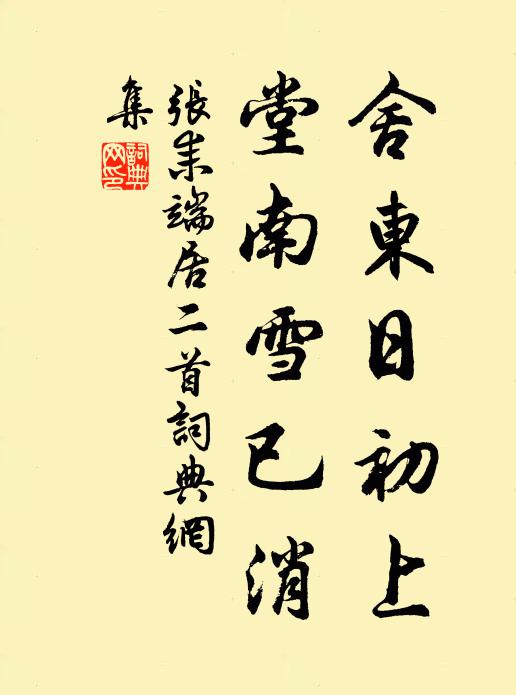 舍東日初上
堂南雪已消
張耒端居二首詞典網
集
詞典
网印